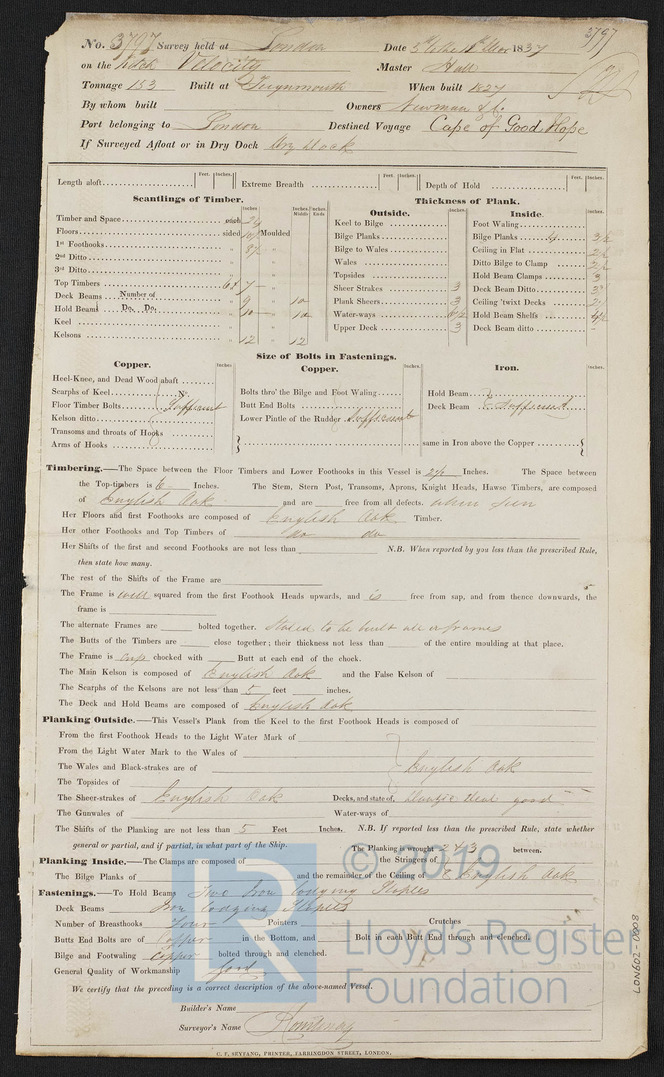 No. 3797 Survey held at London Date 1837
3797
on the Velocity Master Hall
Tonnage 153 Built at Teignmouth When built 1827
By whom built Owners Newman & Co.
Port belonging to London Destined Voyage Cape of Good Hope
If Surveyed Afloat or in Dry Dock Dry Dock
Length aloft Feet. Inches. Extreme Breadth Feet. Inches. Depth of Hold Feet. Inches.
Scantlings of Timber. Thickness of Plank.
Outside. Inside.
Timber and Space each
Floors sided Moulded
1st Foothooks
2nd Ditto
3rd Ditto
Top Timbers
Deck Beams Number of 9 10
Hold Beams Do. Do. 10 10
Keel
Kelsons 12 12
Keel to Bilge
Bilge Planks
Bilge to Wales
Wales
Topsides
Sheer Strakes 3
Plank Sheers 3
Water-ways
Upper Deck 3
Foot Waling
Bilge Planks
Ceiling in Flat
Ditto Bilge to Clamp
Hold Beam Clamps 3
Deck Beam Ditto 3
Ceiling 'twixt Decks 2
Hold Beam Shelfs
Deck Beam ditto
Size of Bolts in Fastenings.
Copper. Copper. Iron.
Heel-Knee, and Dead Wood abaft
Scarphs of Keel No.
Floor Timber Bolts Sufficient
Kelson ditto
Transoms and throats of Hooks
Arms of Hooks
Bolts thro' the Bilge and Foot Waling
Butt End Bolts
Lower Pintle of the Rudder Sufficient
Hold Beam
Deck Beam Sufficient
same in Iron above the Copper
Timbering.—The Space between the Floor Timbers and Lower Foothooks in this Vessel is 2½ Inches. The Space between
the Top-timbers is 6 Inches. The Stem, Stern Post, Transoms, Aprons, Knight Heads, Hawse Timbers, are composed
of English Oak and are free from all defects. when seen
Her Floors and first Foothooks are composed of English Oak Timber.
Her other Foothooks and Top Timbers of do do
Her Shifts of the first and second Foothooks are not less than N.B. When reported by you less than the prescribed Rule,
then state how many.
The rest of the Shifts of the Frame are
The Frame is well squared from the first Foothook Heads upwards, and is free from sap, and from thence downwards, the
frame is
The alternate Frames are bolted together. Stated to be built all in frames
The Butts of the Timbers are close together; their thickness not less than of the entire moulding at that place.
The Frame is chocked with Butt at each end of the chock.
The Main Kelson is composed of English Oak and the False Kelson of
The Scarphs of the Kelsons are not less than 5 feet inches.
The Deck and Hold Beams are composed of English Oak
Planking Outside.—This Vessel's Plank from the Keel to the first Foothook Heads is composed of
From the first Foothook Heads to the Light Water Mark of
From the Light Water Mark to the Wales of
The Wales and Black-strakes are of English Oak
The Topsides of
The Sheer-strakes of English Oak Decks, and state of, Deal good
The Gunwales of Water-ways of
The Shifts of the Planking are not less than 5 Feet Inches. N.B. If reported less than the prescribed Rule, state whether
general or partial, and if partial, in what part of the Ship. The Planking is wrought 2 & 3 between.
Planking Inside.—The Clamps are composed of the Stringers of
The Bilge Planks of and the remainder of the Ceiling of English Oak
Fastenings.—To Hold Beams Two Iron lodging Staples
Deck Beams Iron lodging Staples
Number of Breasthooks Four Pointers Crutches
Butts End Bolts are of Copper in the Bottom, and Bolt in each Butt End through and clenched.
Bilge and Footwaling Copper bolted through and clenched.
General Quality of Workmanship Good
We certify that the preceding is a correct description of the above-named Vessel.
Builder's Name
Surveyor's Name Courtenay
C. F. SEYFANG, PRINTER, FARRINGDON STREET, LONDON.
LON602-0008
© 2019
Lloyd's Register
Foundation